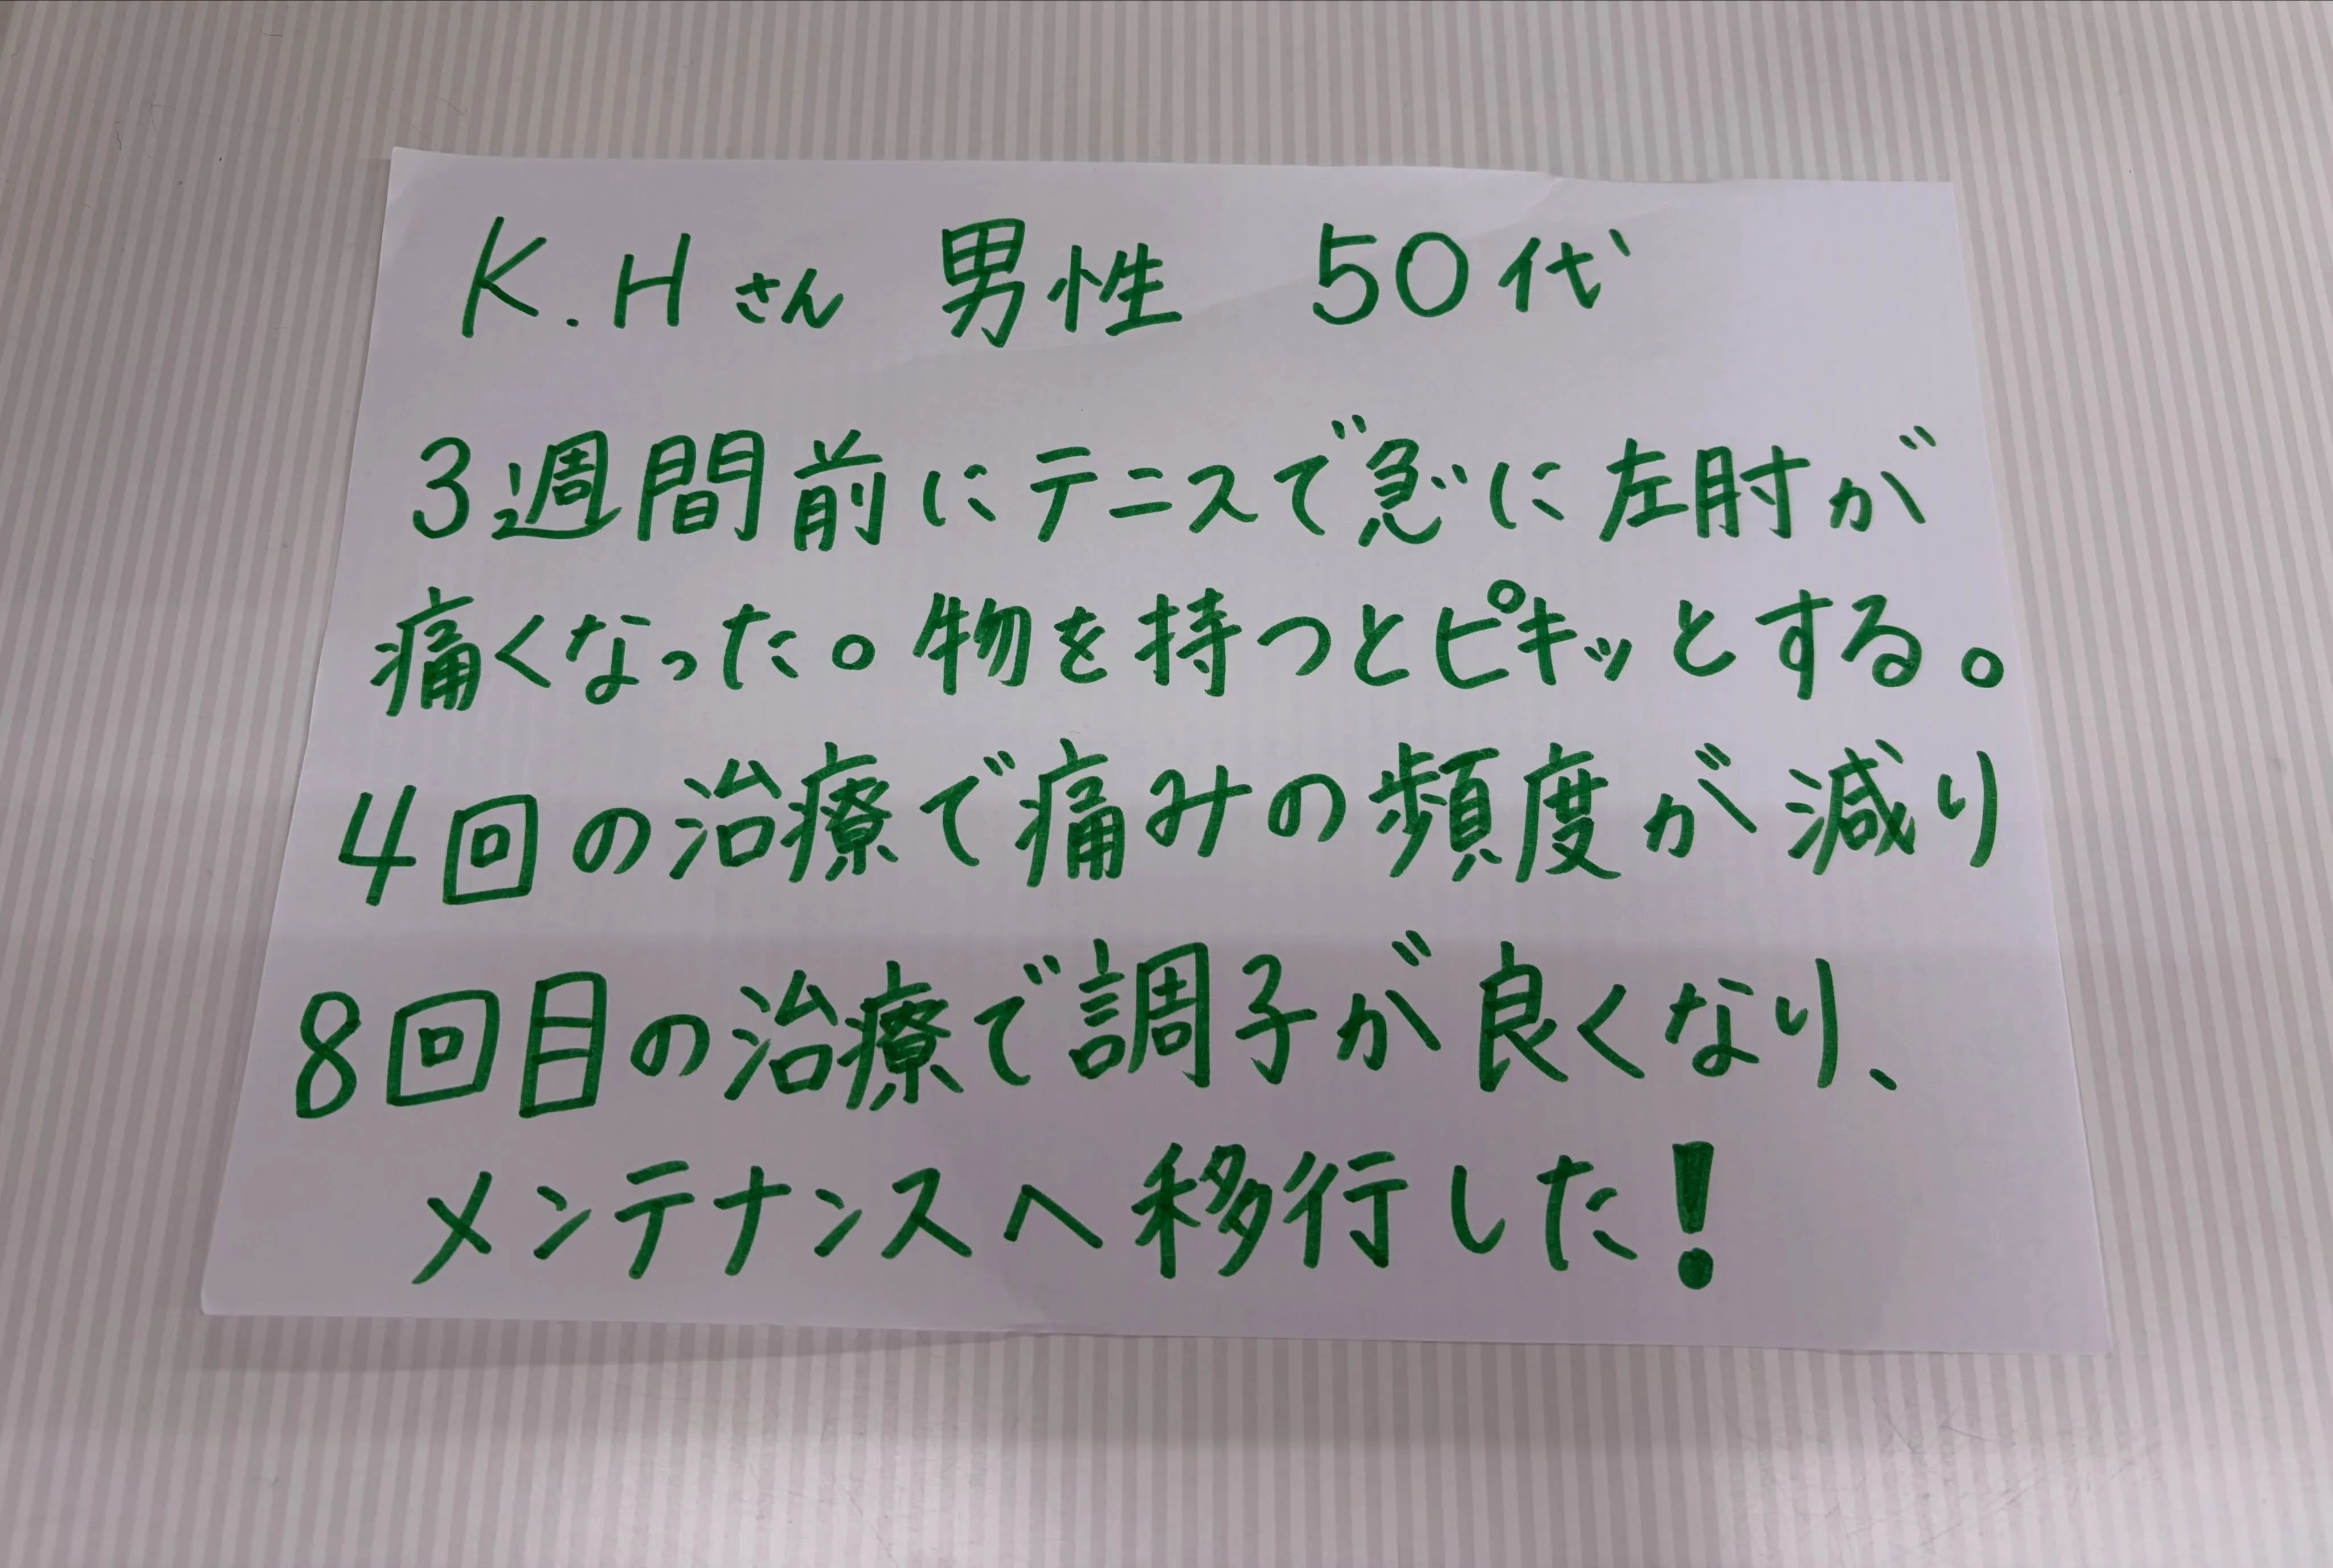 K.Hさん 男性 50代
3週間前にテニスで急に左肘が
痛くなった。物を持つとピキッとする。
4回の治療で痛みの頻度が減り
8回目の治療で調子が良くなり、
メンテナンスへ移行した!